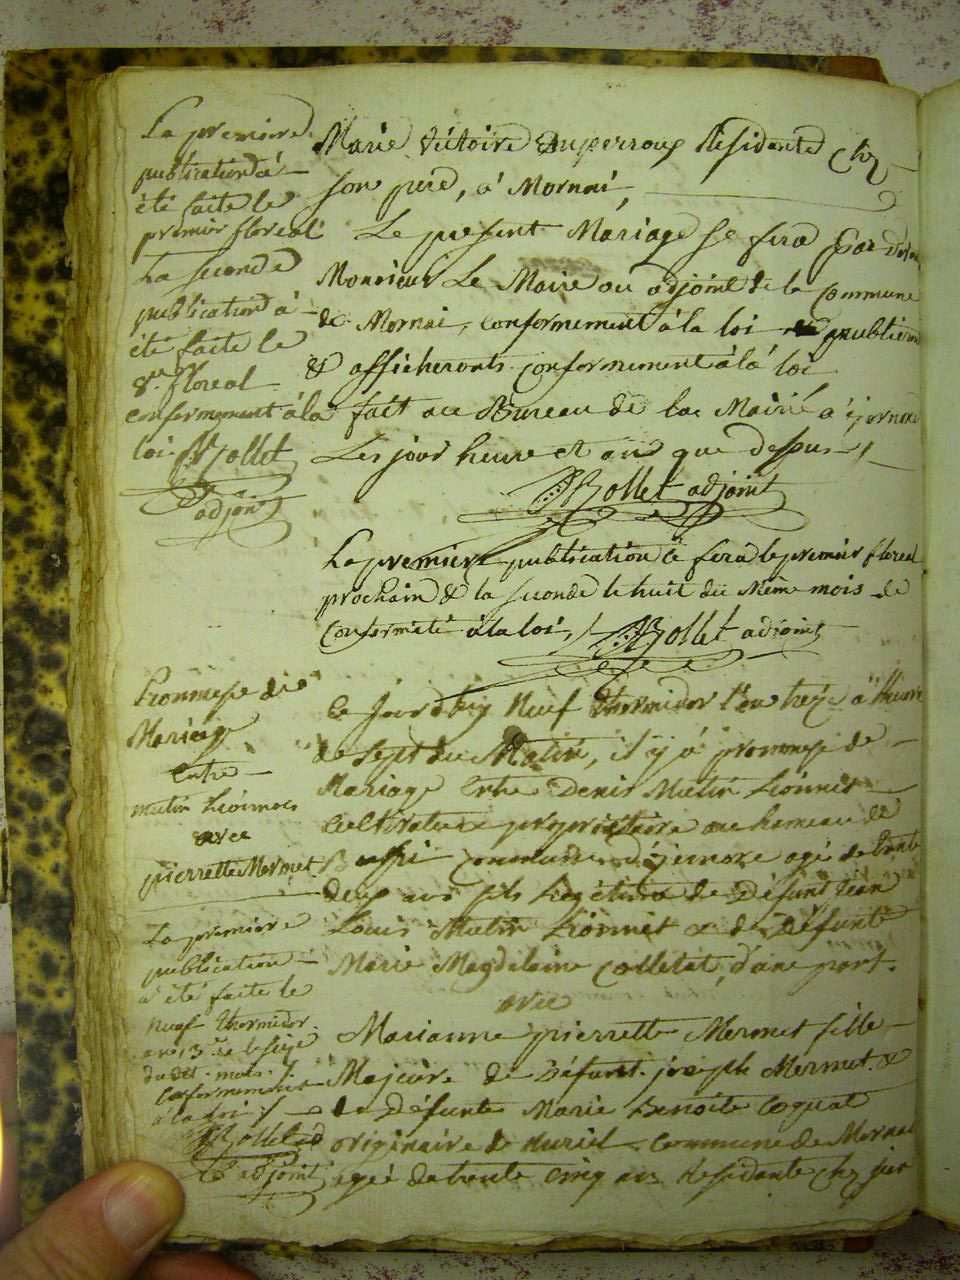 La premiere
publication à
été faite le
premier floreal
La seconde
publication à
été faite le
8.me floreal
conformement à la
loi Bollet
adjoint
Marie Victoire Duperroux Residante chz
son pere, a Mornai,
Le present Mariage se fera par
Monsieur Le Maire ou adjoint de la Commune
de Mornai, conformement à la loi publieront
& afficheronts conformement à la loi
fait au Bureau de la Mairie a
Les jour heure et an que dessus /
Bollet adjoint
La premiere publication se fera le premier floreal
prochain & la seconde le huit du Même mois de
Conformité à la loi, / Bollet adjoint
Prommesse de
Mariage
entre
mutin Lionnet
avec
pierrette Mermet
Ce jourdhuy Neuf thermidor l'an treze a l'heure
de Sept du Matin, il y à prommesse de
Mariage Entre Denis Mutin Lionnet
Cultivateur propriétaire au hameau de
Commune d'ejernore agé de trente
deux ans fils Legitime de Défunt Jean
Louis Mutin Lionnet & de Défunte
Marie Magdelaine Colletat, d'une part.
avec
La premiere
publication
a été faite le
neuf thermidor
an 13 & le seize
du dit mois.
Conformement
a la loi /
Bollet
adjoint
Marianne pierrette Mermet fille
Majeure de Défunt joseph Mermet &
de Défunte Marie Benoite Coquat
originaire de Commune de Mornai
agée de trente cinq ans Residante chz